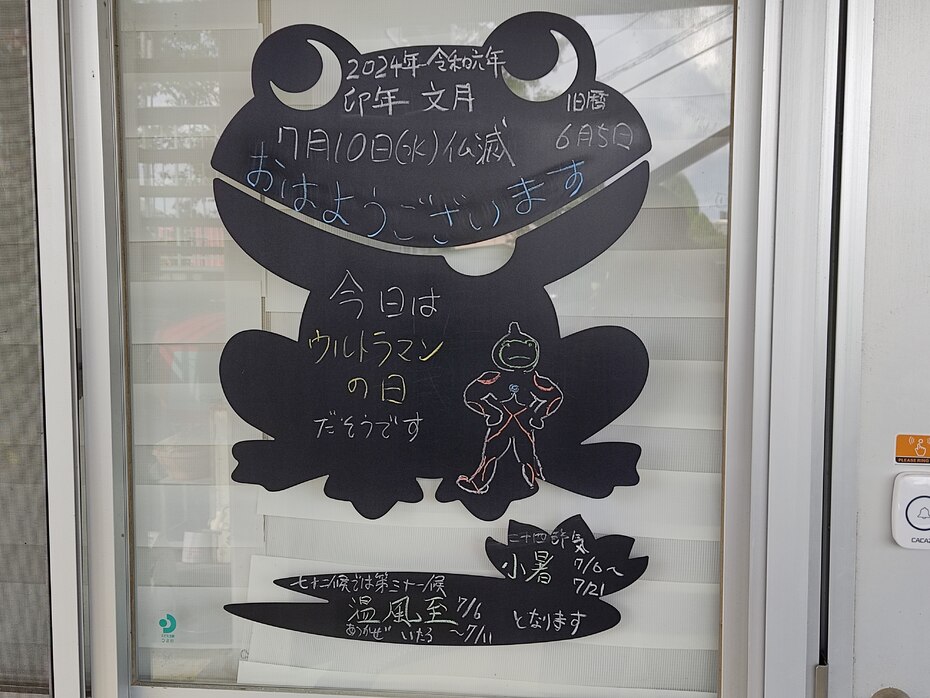 2024年 令和六年
卯年 文月
旧暦
7月10日(水)仏滅
6月5日
おはようございます
今日は
ウルトラマン
の日
だそうです
二十四節気
小暑 7/6〜
7/21
七十二候では第三十一候
温風至 7/6
あつかぜ いたる 〜7/11
となります
PLEASE RING